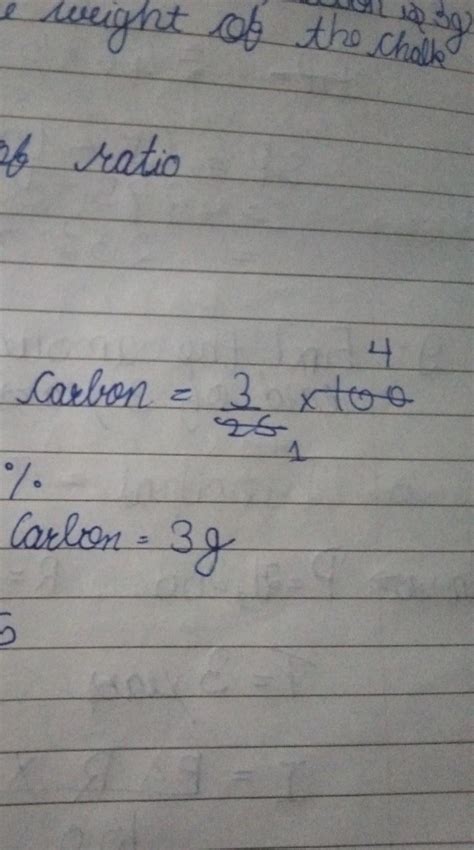 weight of the chalk
is 3g
of ratio
4
Carbon = 3/25 × 100
1
%
Carbon = 3g
5